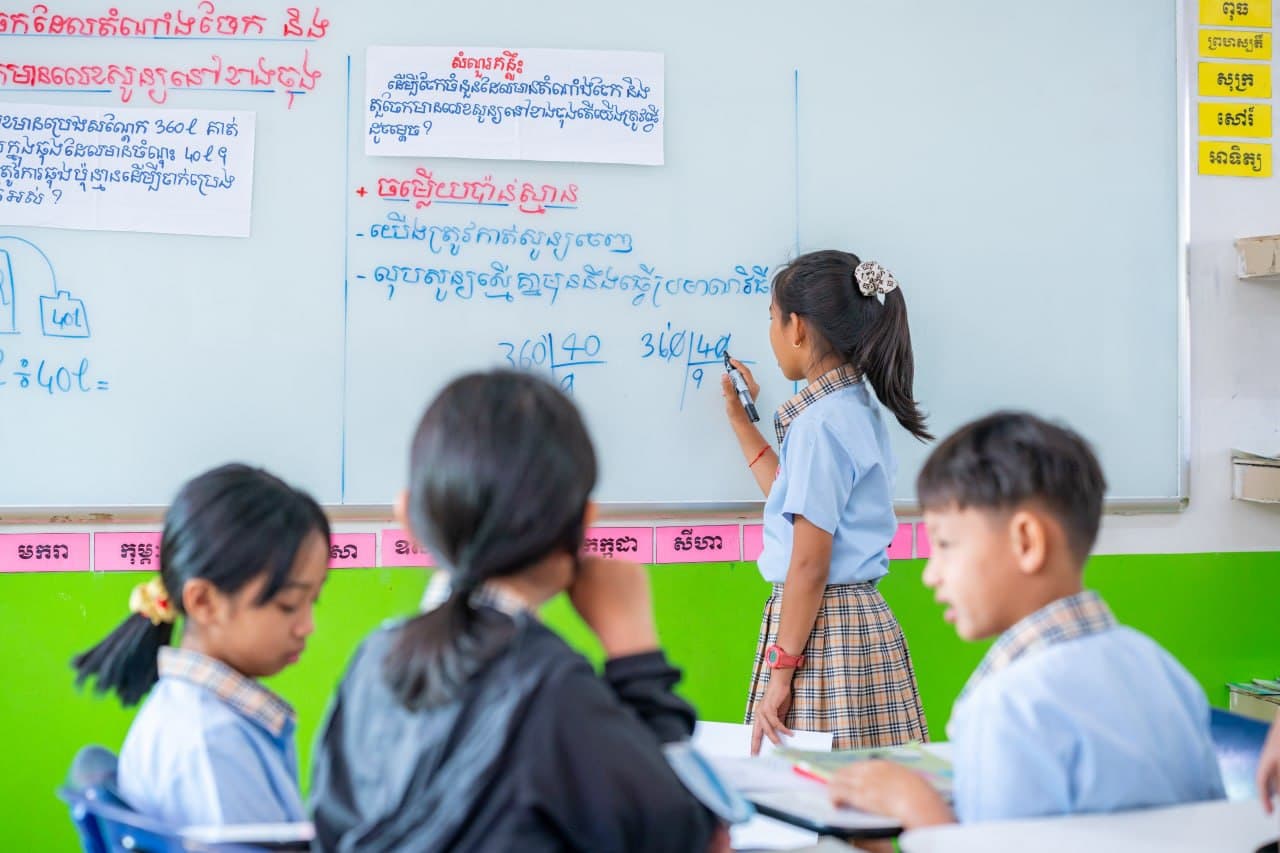 ចែកដែលតំណាំងចែក និង
មានលេខសូន្យនៅខាងចុង
មានប្រេងសណ្តែក 360l គាត់
ក្នុងធុងដែលមានចំណុះ 40l ។
ត្រូវការធុងប៉ុន្មានដើម្បីចាក់ប្រេង
អស់ ?
40l
៖ 40l =
សំណួរគន្លឹះ
ដើម្បីចែកចំនួនដែលមានតំណាំងចែក និង
តួចែកមានលេខសូន្យនៅខាងចុងតើយើងត្រូវធ្វើ
ដូចម្តេច ?
+ ចម្លើយប៉ាន់ស្មាន
- យើងត្រូវកាត់សូន្យចេញ
- លុបសូន្យស្មើគ្នាមុននឹងធ្វើប្រមាណវិធី
360 40
9
360 40
9
ពុធ
ព្រហស្បតិ៍
សុក្រ
សៅរ៍
អាទិត្យ
មករា
កុម្ភ
សា
ឧស
កក្កដា
សីហា